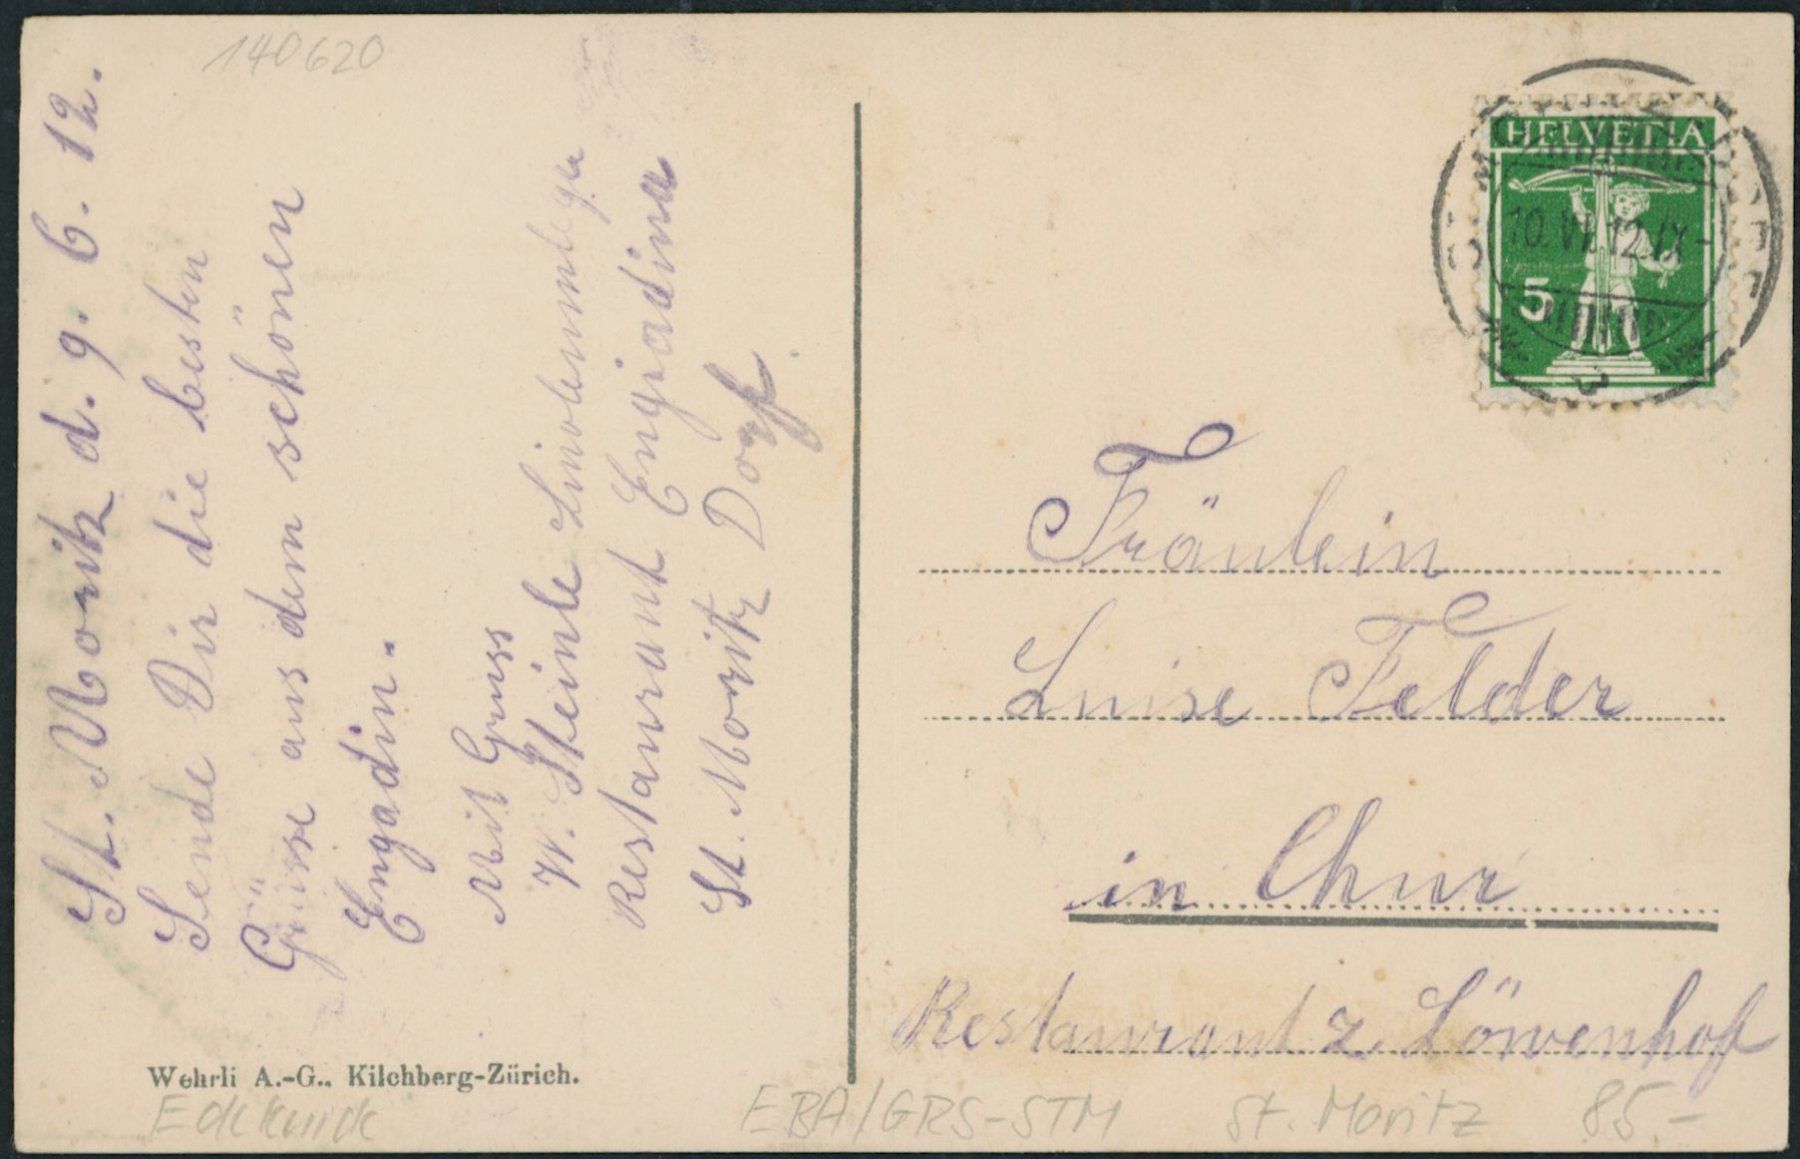 140620
St. Moritz d. 9. 6. 12.
Sende Dir die besten
Grüsse aus dem schönen
Engadin.
Mit Gruss
W. Steinle
Restaurant Engiadina
St. Moritz Dorf
Wehrli A.-G., Kilchberg-Zürich.
Eckknick
HELVETIA
10. VI. 12. IX-
5
3
Fräulein
Luise Felder
in Chur
Restaurant z. Löwenhof
EBA/GRS-STM St. Moritz 85-